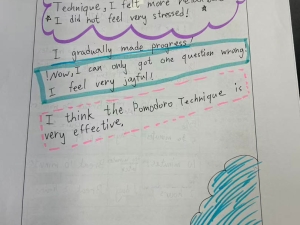 Technique, I felt more
I did not feel very stressed!
I gradually made progress!
Now, I can only got one question wrong
I feel very joyful!
I think the Pomodoro Technique is
very effective.